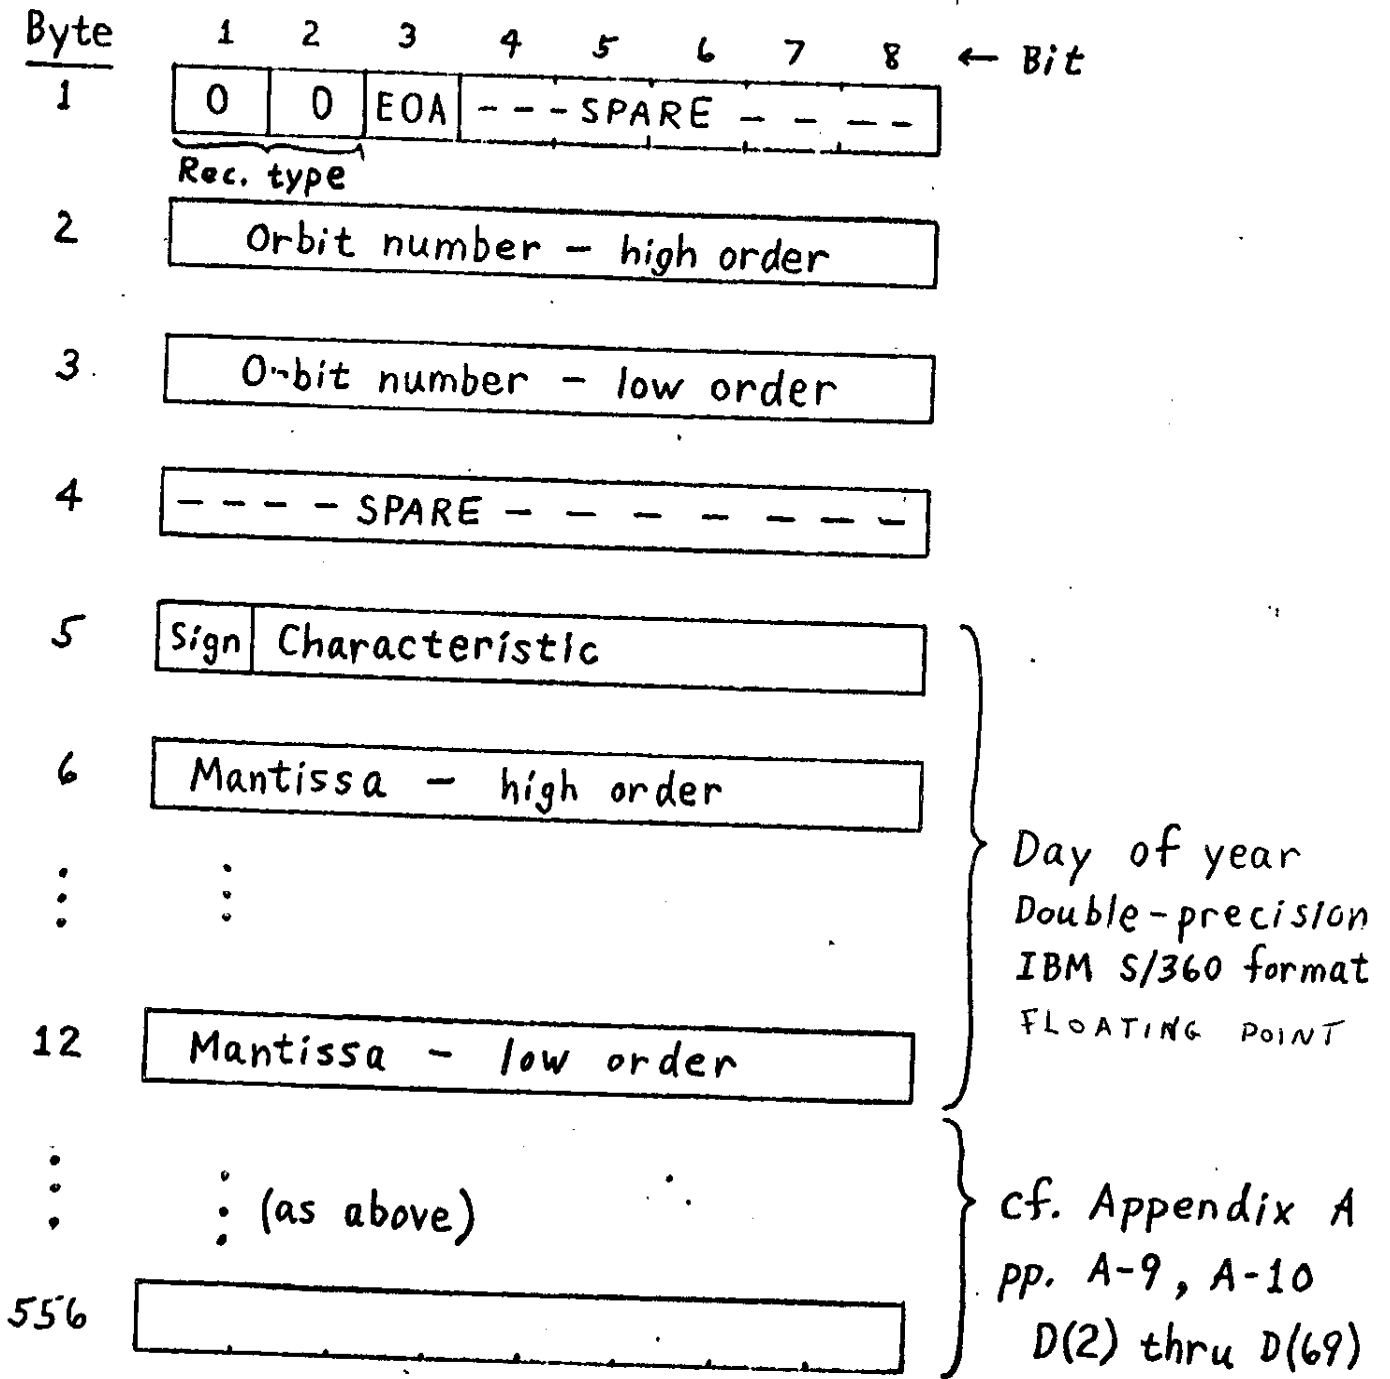 Byte 1 2 3 4 5 6 7 8 ← Bit
1 0 0 EOA - - - SPARE - - - -
Rec. type
2 Orbit number - high order
3 Orbit number - low order
4 - - - - SPARE - - - - - - -
5 Sign Characteristic
6 Mantissa - high order
Day of year
Double-precision
IBM S/360 format
FLOATING POINT
12 Mantissa - low order
(as above)
cf. Appendix A
pp. A-9, A-10
D(2) thru D(69)
556